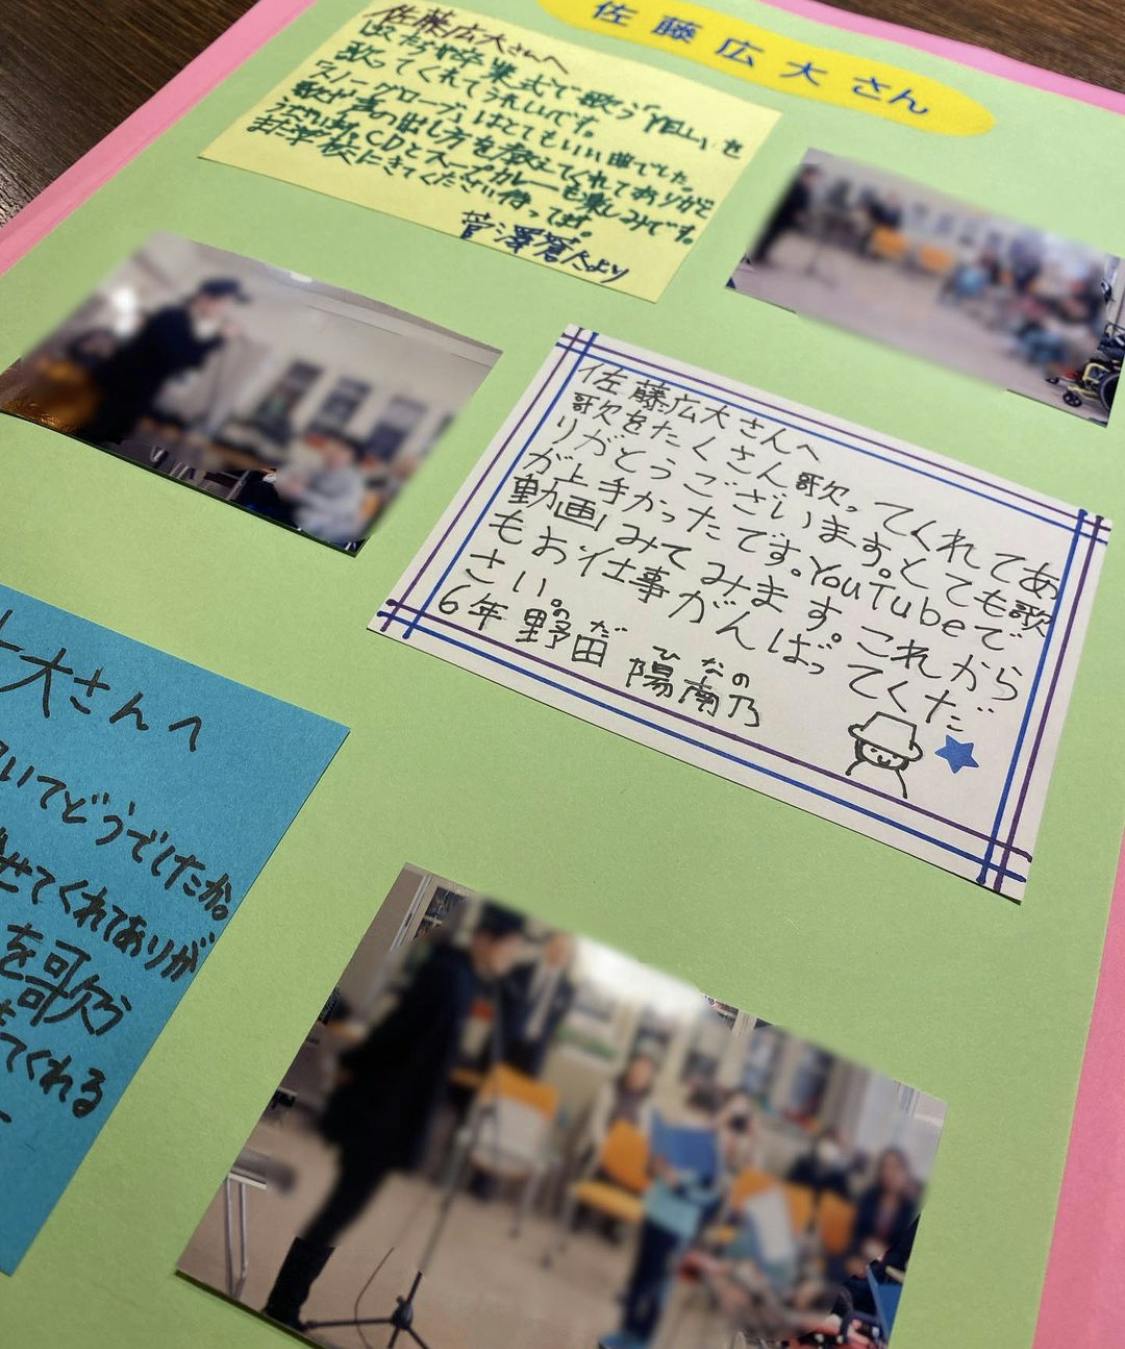 佐藤広大さん
佐藤広大さんへ
ぼたちが卒業式で歌う「YELL」を
歌ってくれてうれしいです。
スノーグローブはとてもいい曲でした。
歌が声の出し方を教えてくれてありがと
うございます。CDとスープカレーも楽しみです。
また学校にきてください待ってます。
菅澤蒼大より
佐藤広大さんへ
歌をたくさん歌ってくれてあ
りがとうございます。とても歌
が上手かったです。YouTubeで
動画みてみます。これから
もお仕事がんばってくだ
さい。
6年 野田 陽南乃
の だ ひなの
大さんへ
いてどうでしたか。
せてくれてありが
を歌う
てくれる